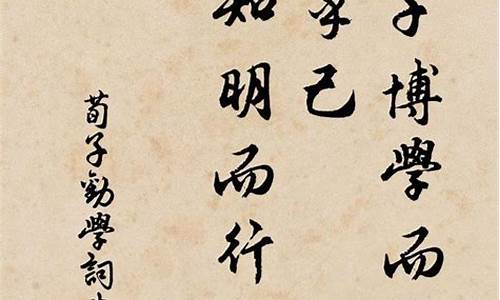 子博學而
乎己
知明而行
荀子勸學詞